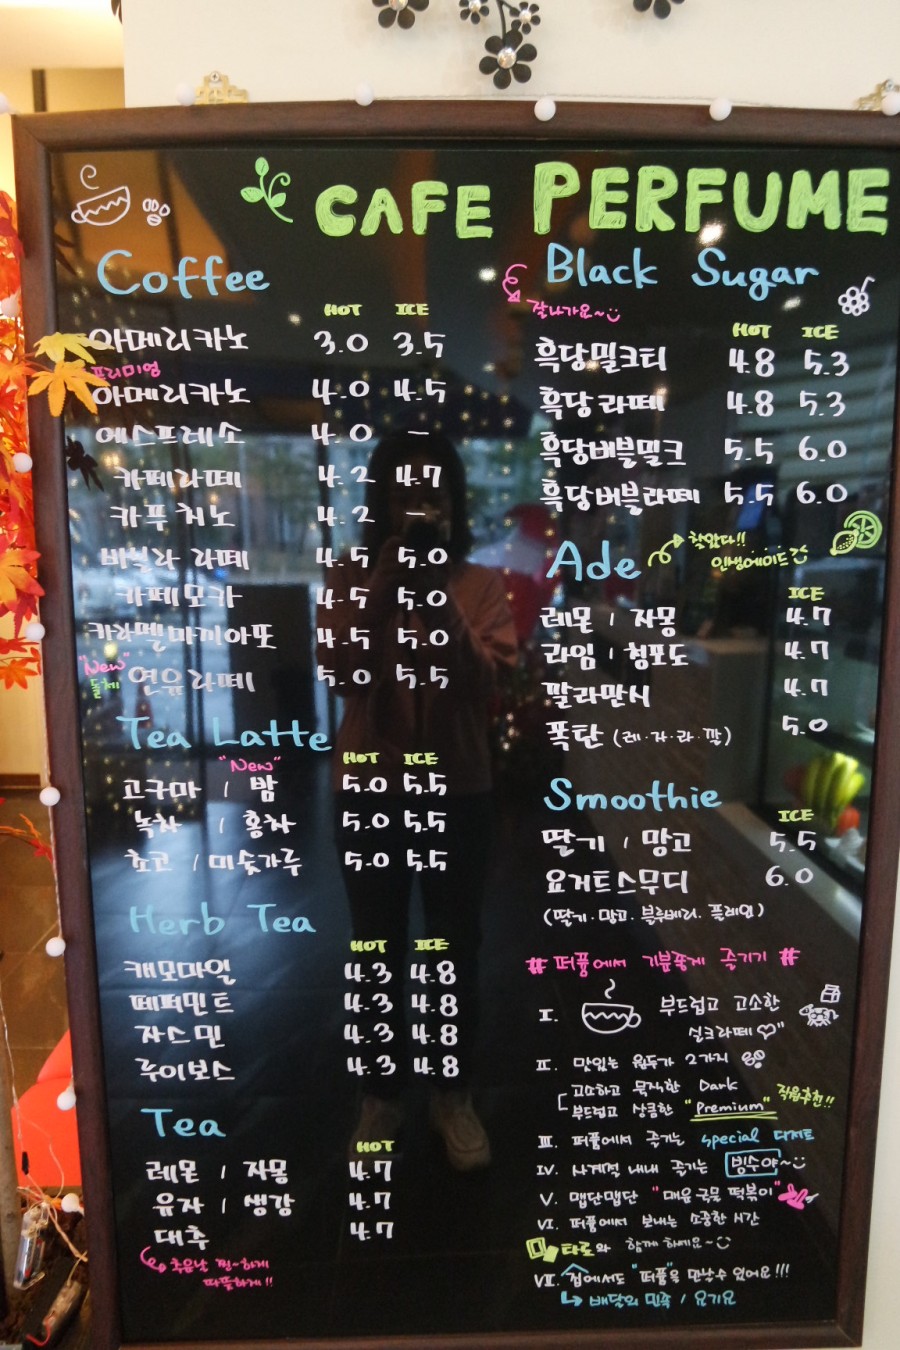 CAFE PERFUME
Coffee
HOT ICE
아메리카노 3.0 3.5
프리미엄
아메리카노 4.0 4.5
에스프레소 4.0 -
카페라떼 4.2 4.7
카푸치노 4.2 -
바닐라 라떼 4.5 5.0
카페모카 4.5 5.0
카라멜마끼아또 4.5 5.0
"New"
돌체 연유라떼 5.0 5.5
Tea Latte
HOT ICE
"New"
고구마 / 밤 5.0 5.5
녹차 / 홍차 5.0 5.5
초코 / 미숫가루 5.0 5.5
Herb Tea
HOT ICE
캐모마일 4.3 4.8
페퍼민트 4.3 4.8
자스민 4.3 4.8
루이보스 4.3 4.8
Tea
HOT
레몬 / 자몽 4.7
유자 / 생강 4.7
대추 4.7
추운날 찐~하게
따뜻하게!!
Black Sugar
잘나가요~
HOT ICE
흑당밀크티 4.8 5.3
흑당라떼 4.8 5.3
흑당버블밀크 5.5 6.0
흑당버블라떼 5.5 6.0
Ade
찾았다!!
인생에이드
ICE
레몬 / 자몽 4.7
라임 / 청포도 4.7
깔라만시 4.7
폭탄 (레.자.라.깔) 5.0
Smoothie
ICE
딸기 / 망고 5.5
요거트스무디 6.0
(딸기.망고.블루베리.플레인)
# 퍼퓸에서 기분좋게 즐기기 #
I. 부드럽고 고소한
실크라떼♡"
II. 맛있는 원두가 2가지
고소하고 묵직한 Dark
부드럽고 상큼한 "Premium" 적극추천!!
III. 퍼퓸에서 즐기는 special 디저트
IV. 사계절 내내 즐기는 빙수야~
V. 맵단맵단 "매운국물 떡볶이"
VI. 퍼퓸에서 보내는 소중한 시간
타로와 함께 하세요~
VII. 집에서도 "퍼퓸"을 만날수 있어요!!!
배달의 민족 / 요기요